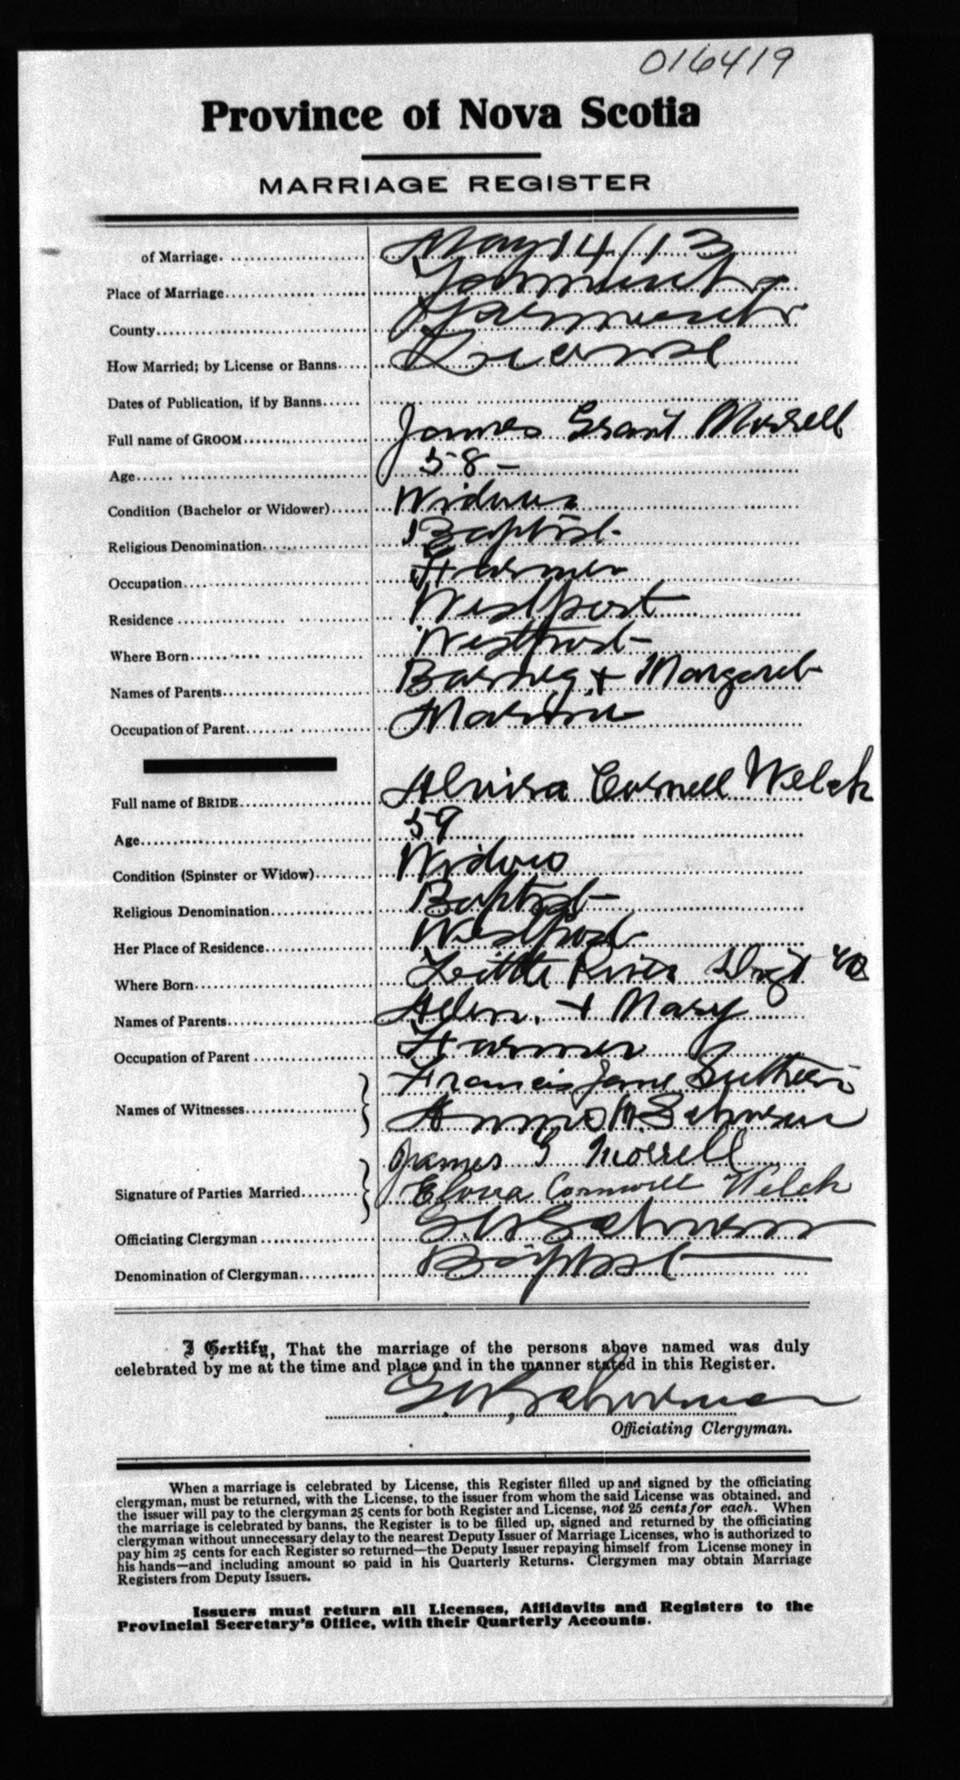 016419
Province of Nova Scotia
MARRIAGE REGISTER
of Marriage. May 14/13
Place of Marriage Yarmouth
County Yarmouth
How Married; by License or Banns License
Dates of Publication, if by Banns
Full name of GROOM James Grant Morrell
Age 58 -
Condition (Bachelor or Widower) Widower
Religious Denomination Baptist
Occupation Farmer
Residence Westport
Where Born Westport
Names of Parents Barney + Margaret
Occupation of Parent Mariner
Full name of BRIDE Cornell Welch
Age 59
Condition (Spinster or Widow) Widow
Religious Denomination Baptist
Her Place of Residence Westport
Where Born Little River
Names of Parents Allen. + Mary
Occupation of Parent Farmer
Francis Jane
Names of Witnesses
James G Morrell
Signature of Parties Married Cornwell Welch
Officiating Clergyman
Denomination of Clergyman Baptist
I Certify, That the marriage of the persons above named was duly
celebrated by me at the time and place and in the manner stated in this Register.
Officiating Clergyman.
When a marriage is celebrated by License, this Register filled up and signed by the officiating
clergyman, must be returned, with the License, to the issuer from whom the said License was obtained, and
the issuer will pay to the clergyman 25 cents for both Register and License, not 25 cents for each. When
the marriage is celebrated by banns, the Register is to be filled up, signed and returned by the officiating
clergyman without unnecessary delay to the nearest Deputy Issuer of Marriage Licenses, who is authorized to
pay him 25 cents for each Register so returned—the Deputy Issuer repaying himself from License money in
his hands—and including amount so paid in his Quarterly Returns. Clergymen may obtain Marriage
Registers from Deputy Issuers.
Issuers must return all Licenses, Affidavits and Registers to the
Provincial Secretary's Office, with their Quarterly Accounts.